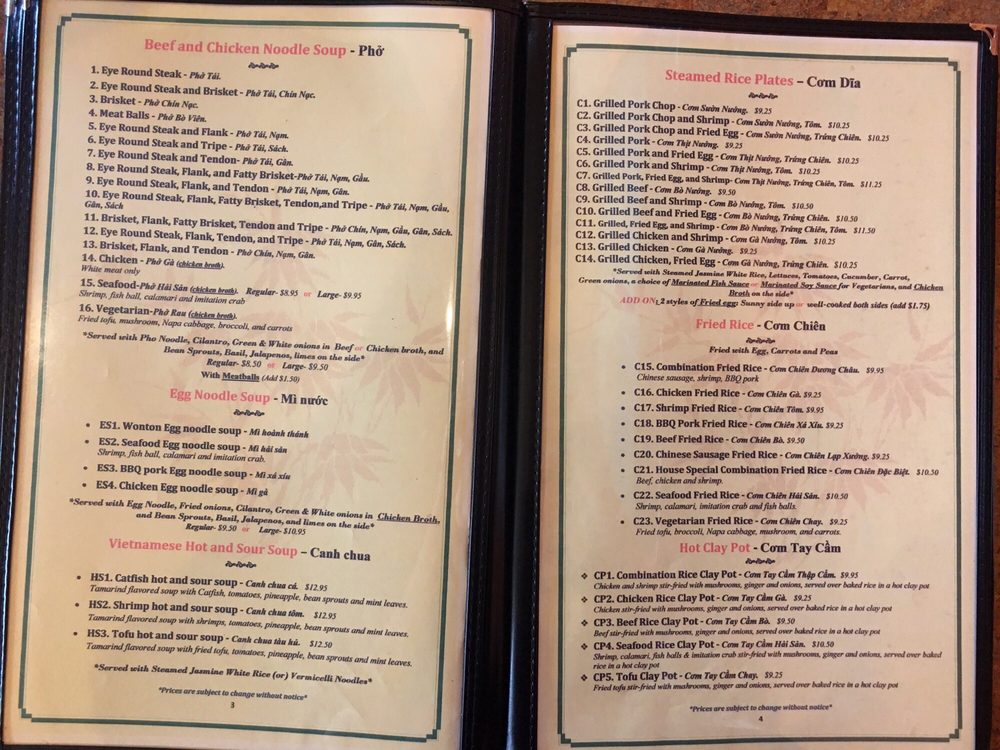 Beef and Chicken Noodle Soup - Phở
1. Eye Round Steak - Phở Tái.
2. Eye Round Steak and Brisket - Phở Tái, Chín Nạc.
3. Brisket - Phở Chín Nạc.
4. Meat Balls - Phở Bò Viên.
5. Eye Round Steak and Flank - Phở Tái, Nạm.
6. Eye Round Steak and Tripe - Phở Tái, Sách.
7. Eye Round Steak and Tendon- Phở Tái, Gân.
8. Eye Round Steak, Flank, and Fatty Brisket-Phở Tái, Nạm, Gầu.
9. Eye Round Steak, Flank, and Tendon - Phở Tái, Nạm, Gân.
10. Eye Round Steak, Flank, Fatty Brisket, Tendon,and Tripe - Phở Tái, Nạm, Gầu,
Gân, Sách
11. Brisket, Flank, Fatty Brisket, Tendon and Tripe - Phở Chín, Nạm, Gầu, Gân, Sách.
12. Eye Round Steak, Flank, Tendon, and Tripe - Phở Tái, Nạm, Gân, Sách.
13. Brisket, Flank, and Tendon - Phở Chín, Nạm, Gân.
14. Chicken - Phở Gà (chicken broth).
White meat only
15. Seafood-Phở Hải Sản (chicken broth). Regular- $8.95 or Large- $9.95
Shrimp, fish ball, calamari and imitation crab
16. Vegetarian-Phở Rau (chicken broth).
Fried tofu, mushroom, Napa cabbage, broccoli, and carrots
*Served with Pho Noodle, Cilantro, Green & White onions in Beef or Chicken broth, and
Bean Sprouts, Basil, Jalapenos, limes on the side*
Regular- $8.50 or Large- $9.50
With Meatballs (Add $1.50)
Egg Noodle Soup - Mì nước
• ES1. Wonton Egg noodle soup - Mì hoành thánh
• ES2. Seafood Egg noodle soup - Mì hải sản
Shrimp, fish ball, calamari and imitation crab.
• ES3. BBQ pork Egg noodle soup - Mì xá xíu
• ES4. Chicken Egg noodle soup - Mì gà
*Served with Egg Noodle, Fried onions, Cilantro, Green & White onions in Chicken Broth,
and Bean Sprouts, Basil, Jalapenos, and limes on the side*
Regular- $9.50 or Large- $10.95
Vietnamese Hot and Sour Soup – Canh chua
• HS1. Catfish hot and sour soup - Canh chua cá. $12.95
Tamarind flavored soup with Catfish, tomatoes, pineapple, bean sprouts and mint leaves.
• HS2. Shrimp hot and sour soup - Canh chua tôm. $12.95
Tamarind flavored soup with shrimps, tomatoes, pineapple, bean sprouts and mint leaves.
• HS3. Tofu hot and sour soup - Canh chua tàu hủ. $12.50
Tamarind flavored soup with fried tofu, tomatoes, pineapple, bean sprouts and mint leaves.
*Served with Steamed Jasmine White Rice (or) Vermicelli Noodles*
*Prices are subject to change without notice*
3
Steamed Rice Plates – Cơm Dĩa
C1. Grilled Pork Chop - Cơm Sườn Nướng. $9.25
C2. Grilled Pork Chop and Shrimp - Cơm Sườn Nướng, Tôm. $10.25
C3. Grilled Pork Chop and Fried Egg - Cơm Sườn Nướng, Trứng Chiên. $10.25
C4. Grilled Pork - Cơm Thịt Nướng. $9.25
C5. Grilled Pork and Fried Egg - Cơm Thịt Nướng, Trứng Chiên. $10.25
C6. Grilled Pork and Shrimp - Cơm Thịt Nướng, Tôm. $10.25
C7. Grilled Pork, Fried Egg, and Shrimp- Cơm Thịt Nướng, Trứng Chiên, Tôm. $11.25
C8. Grilled Beef - Cơm Bò Nướng. $9.50
C9. Grilled Beef and Shrimp - Cơm Bò Nướng, Tôm. $10.50
C10. Grilled Beef and Fried Egg - Cơm Bò Nướng, Trứng Chiên. $10.50
C11. Grilled, Fried Egg, and Shrimp - Cơm Bò Nướng, Trứng Chiên, Tôm. $11.50
C12. Grilled Chicken and Shrimp - Cơm Gà Nướng, Tôm. $10.25
C13. Grilled Chicken - Cơm Gà Nướng. $9.25
C14. Grilled Chicken, Fried Egg - Cơm Gà Nướng, Trứng Chiên. $10.25
*Served with Steamed Jasmine White Rice, Lettuces, Tomatoes, Cucumber, Carrot,
Green onions, a choice of Marinated Fish Sauce or Marinated Soy Sauce for Vegetarians, and Chicken
Broth on the side*
ADD ON: 2 styles of Fried egg: Sunny side up or well-cooked both sides (add $1.75)
Fried Rice - Cơm Chiên
Fried with Egg, Carrots and Peas
• C15. Combination Fried Rice - Cơm Chiên Dương Châu. $9.95
Chinese sausage, shrimp, BBQ pork
• C16. Chicken Fried Rice - Cơm Chiên Gà. $9.25
• C17. Shrimp Fried Rice - Cơm Chiên Tôm. $9.95
• C18. BBQ Pork Fried Rice - Cơm Chiên Xá Xíu. $9.25
• C19. Beef Fried Rice - Cơm Chiên Bò. $9.50
• C20. Chinese Sausage Fried Rice - Cơm Chiên Lạp Xưởng. $9.25
• C21. House Special Combination Fried Rice - Cơm Chiên Đặc Biệt. $10.50
Beef, chicken and shrimp.
• C22. Seafood Fried Rice - Cơm Chiên Hải Sản. $10.50
Shrimp, calamari, imitation crab and fish balls.
• C23. Vegetarian Fried Rice - Cơm Chiên Chay. $9.25
Fried tofu, broccoli, Napa cabbage, mushroom, and carrots.
Hot Clay Pot - Cơm Tay Cầm
❖ CP1. Combination Rice Clay Pot - Cơm Tay Cầm Thập Cẩm. $9.95
Chicken and shrimp stir-fried with mushrooms, ginger and onions, served over baked rice in a hot clay pot
❖ CP2. Chicken Rice Clay Pot - Cơm Tay Cầm Gà. $9.25
Chicken stir-fried with mushrooms, ginger and onions, served over baked rice in a hot clay pot
❖ CP3. Beef Rice Clay Pot - Cơm Tay Cầm Bò. $9.50
Beef stir-fried with mushrooms, ginger and onions, served over baked rice in a hot clay pot
❖ CP4. Seafood Rice Clay Pot - Cơm Tay Cầm Hải Sản. $10.50
Shrimp, calamari, fish balls & imitation crab stir-fried with mushrooms, ginger and onions, served over baked
rice in a hot clay pot
❖ CP5. Tofu Clay Pot - Cơm Tay Cầm Chay. $9.25
Fried tofu stir-fried with mushrooms, ginger and onions, served over baked rice in a hot clay pot
*Prices are subject to change without notice*
4